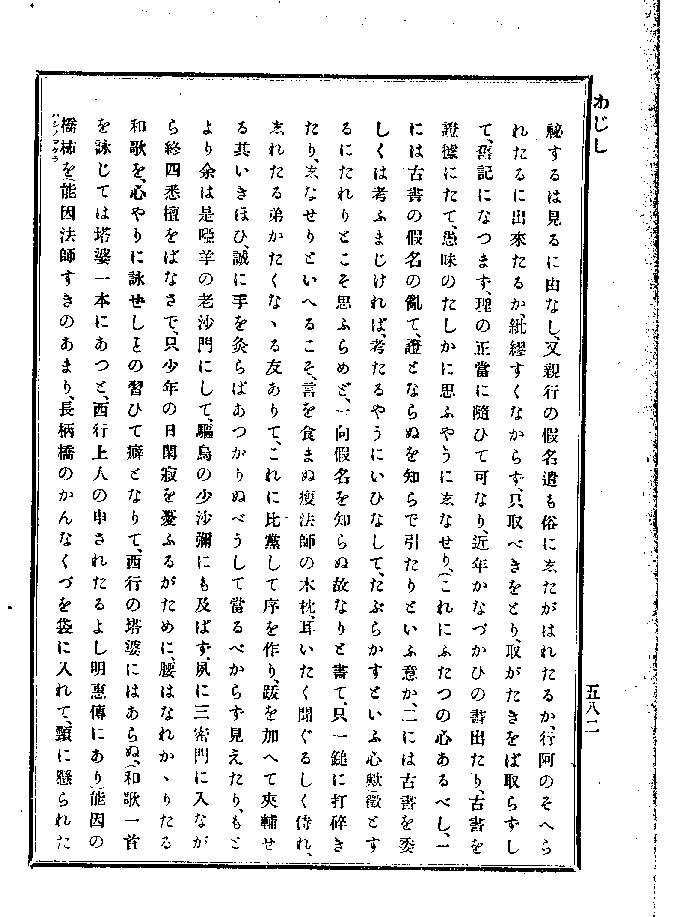 わじし
祕するは見るに由なし、又親行の假名遣も俗にゑたがはれたるか、行阿のそへら
れたるに出來たるか、紕繆すくなからず、只取べきをとり、取がたきをば取らずし
て、舊記になつまず、理の正當に隨ひて可なり、近年かなづかひの書出たり、古書を
證據にたて、愚味のたしかに思ふやうにゑなせり、(これにふたつの心あるべし、一
には古書の假名の亂て、證とならぬを知らで引たりといふ意か、二には古書を委
しくは考ふまじければ、考たるやうにいひなして、たぶらかすといふ心歟)徵とす
るにたれりとこそ思ふらめど、一向假名を知らぬ故なりと書て、只一鎚に打碎き
たり、ゑなせりといへるこそ、言を食まぬ瘦法師の木枕、耳いたく聞ぐるしく侍れ、
ゑれたる弟かたくなゝる友ありて、これに比黨して序を作り、跋を加へて夾輔せ
る其いきほひ、誠に手を灸らばあつかりぬべうして當るべからず見えたり、もと
より余は是啞羊の老沙門にして、驅烏の少沙彌にも及ばす、夙に三密門に入なが
ら終四悉檀をばなさで、只少年の日閑寂を憂ふるがために、腰はなれかゝりたる
和歌を、心やりに詠せしその習ひて癖となりて、西行の塔婆にはあらぬ、(和歌一首
を詠じては塔婆一本にあつと、西行上人の申されたるよし明惠傳にあり)能因の
橋柹を(能因法師すきのあまり、長柄橋のかんなくづを袋に入れて、頸に懸られた
五八二